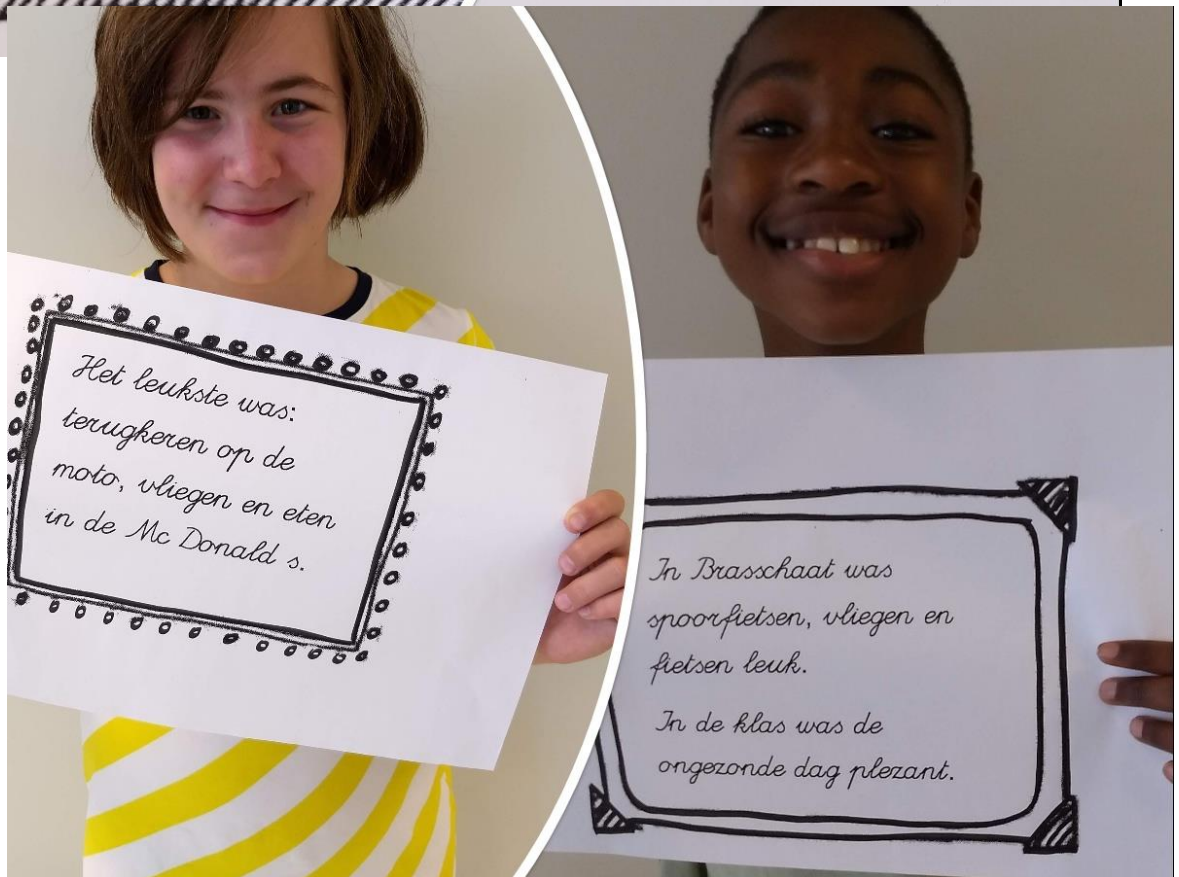 Het leukste was:
terugkeren op de
moto, vliegen en eten
in de Mc Donald s.
In Brasschaat was
spoorfietsen, vliegen en
fietsen leuk.
In de klas was de
ongezonde dag plezant.